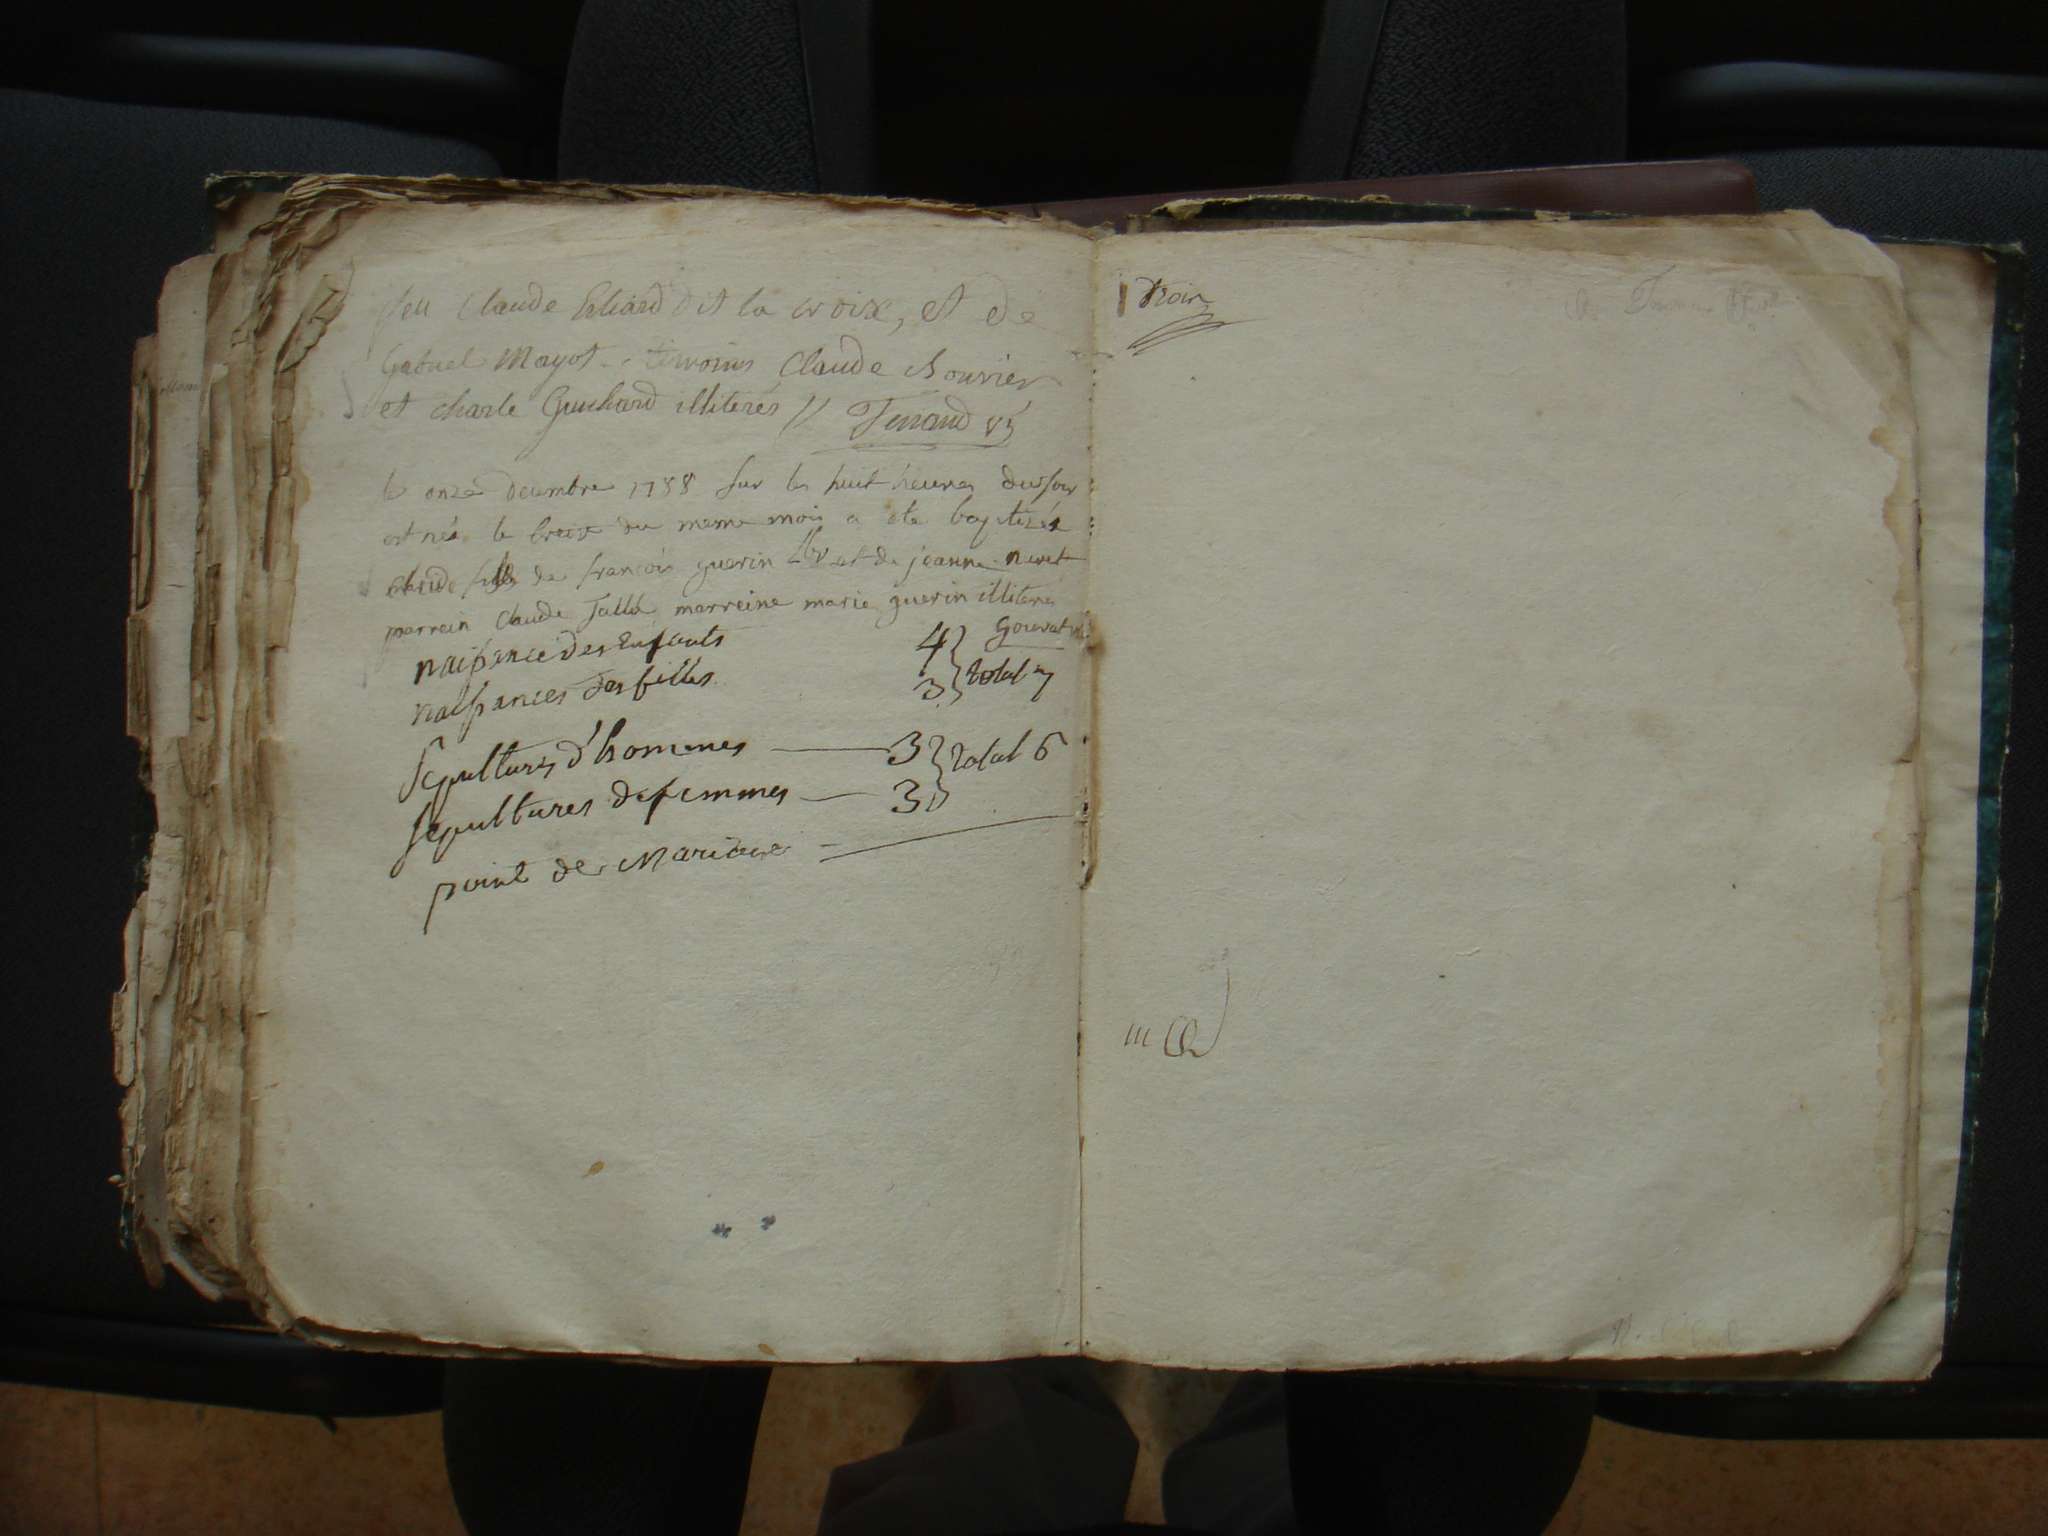 feu Claude Erhard dit la croix, et de
Gabriel Mayot. temoins Claude Bouvier
et charle Guichard illiterés // Ferrand
le onze decembre 1788 sur les huit heures du soir
est née le treize du meme mois a ete baptizée
claude fille de francois guerin Lbr et de jeanne
parrein Claude marreine marie guerin illiteres
naissance des Enfants 4
naissances des filles 3 total 7
sepultures d'hommes 3
sepultures de femmes 3 total 6
point de Mariage